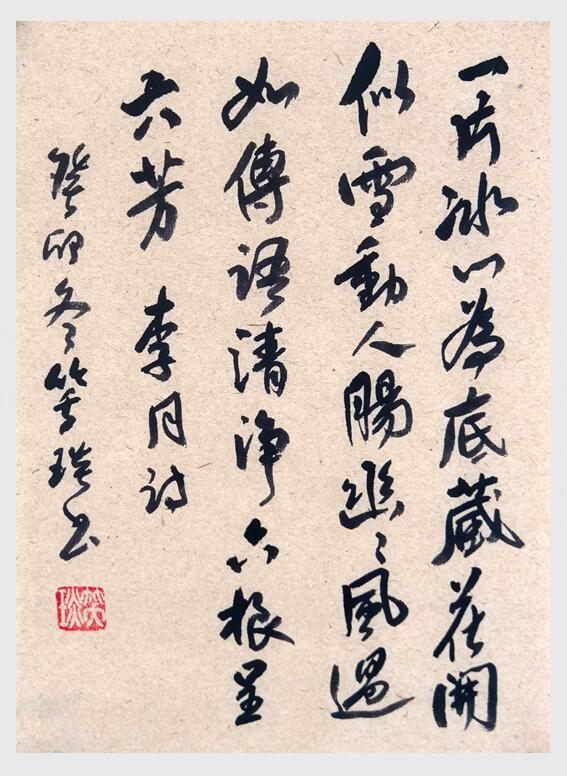 一片冰心為底藏花開
似雪動人腸幽〻風過
如傳語清淨六根呈
六芳 李月詩
癸卯冬笑琰书
笑琰